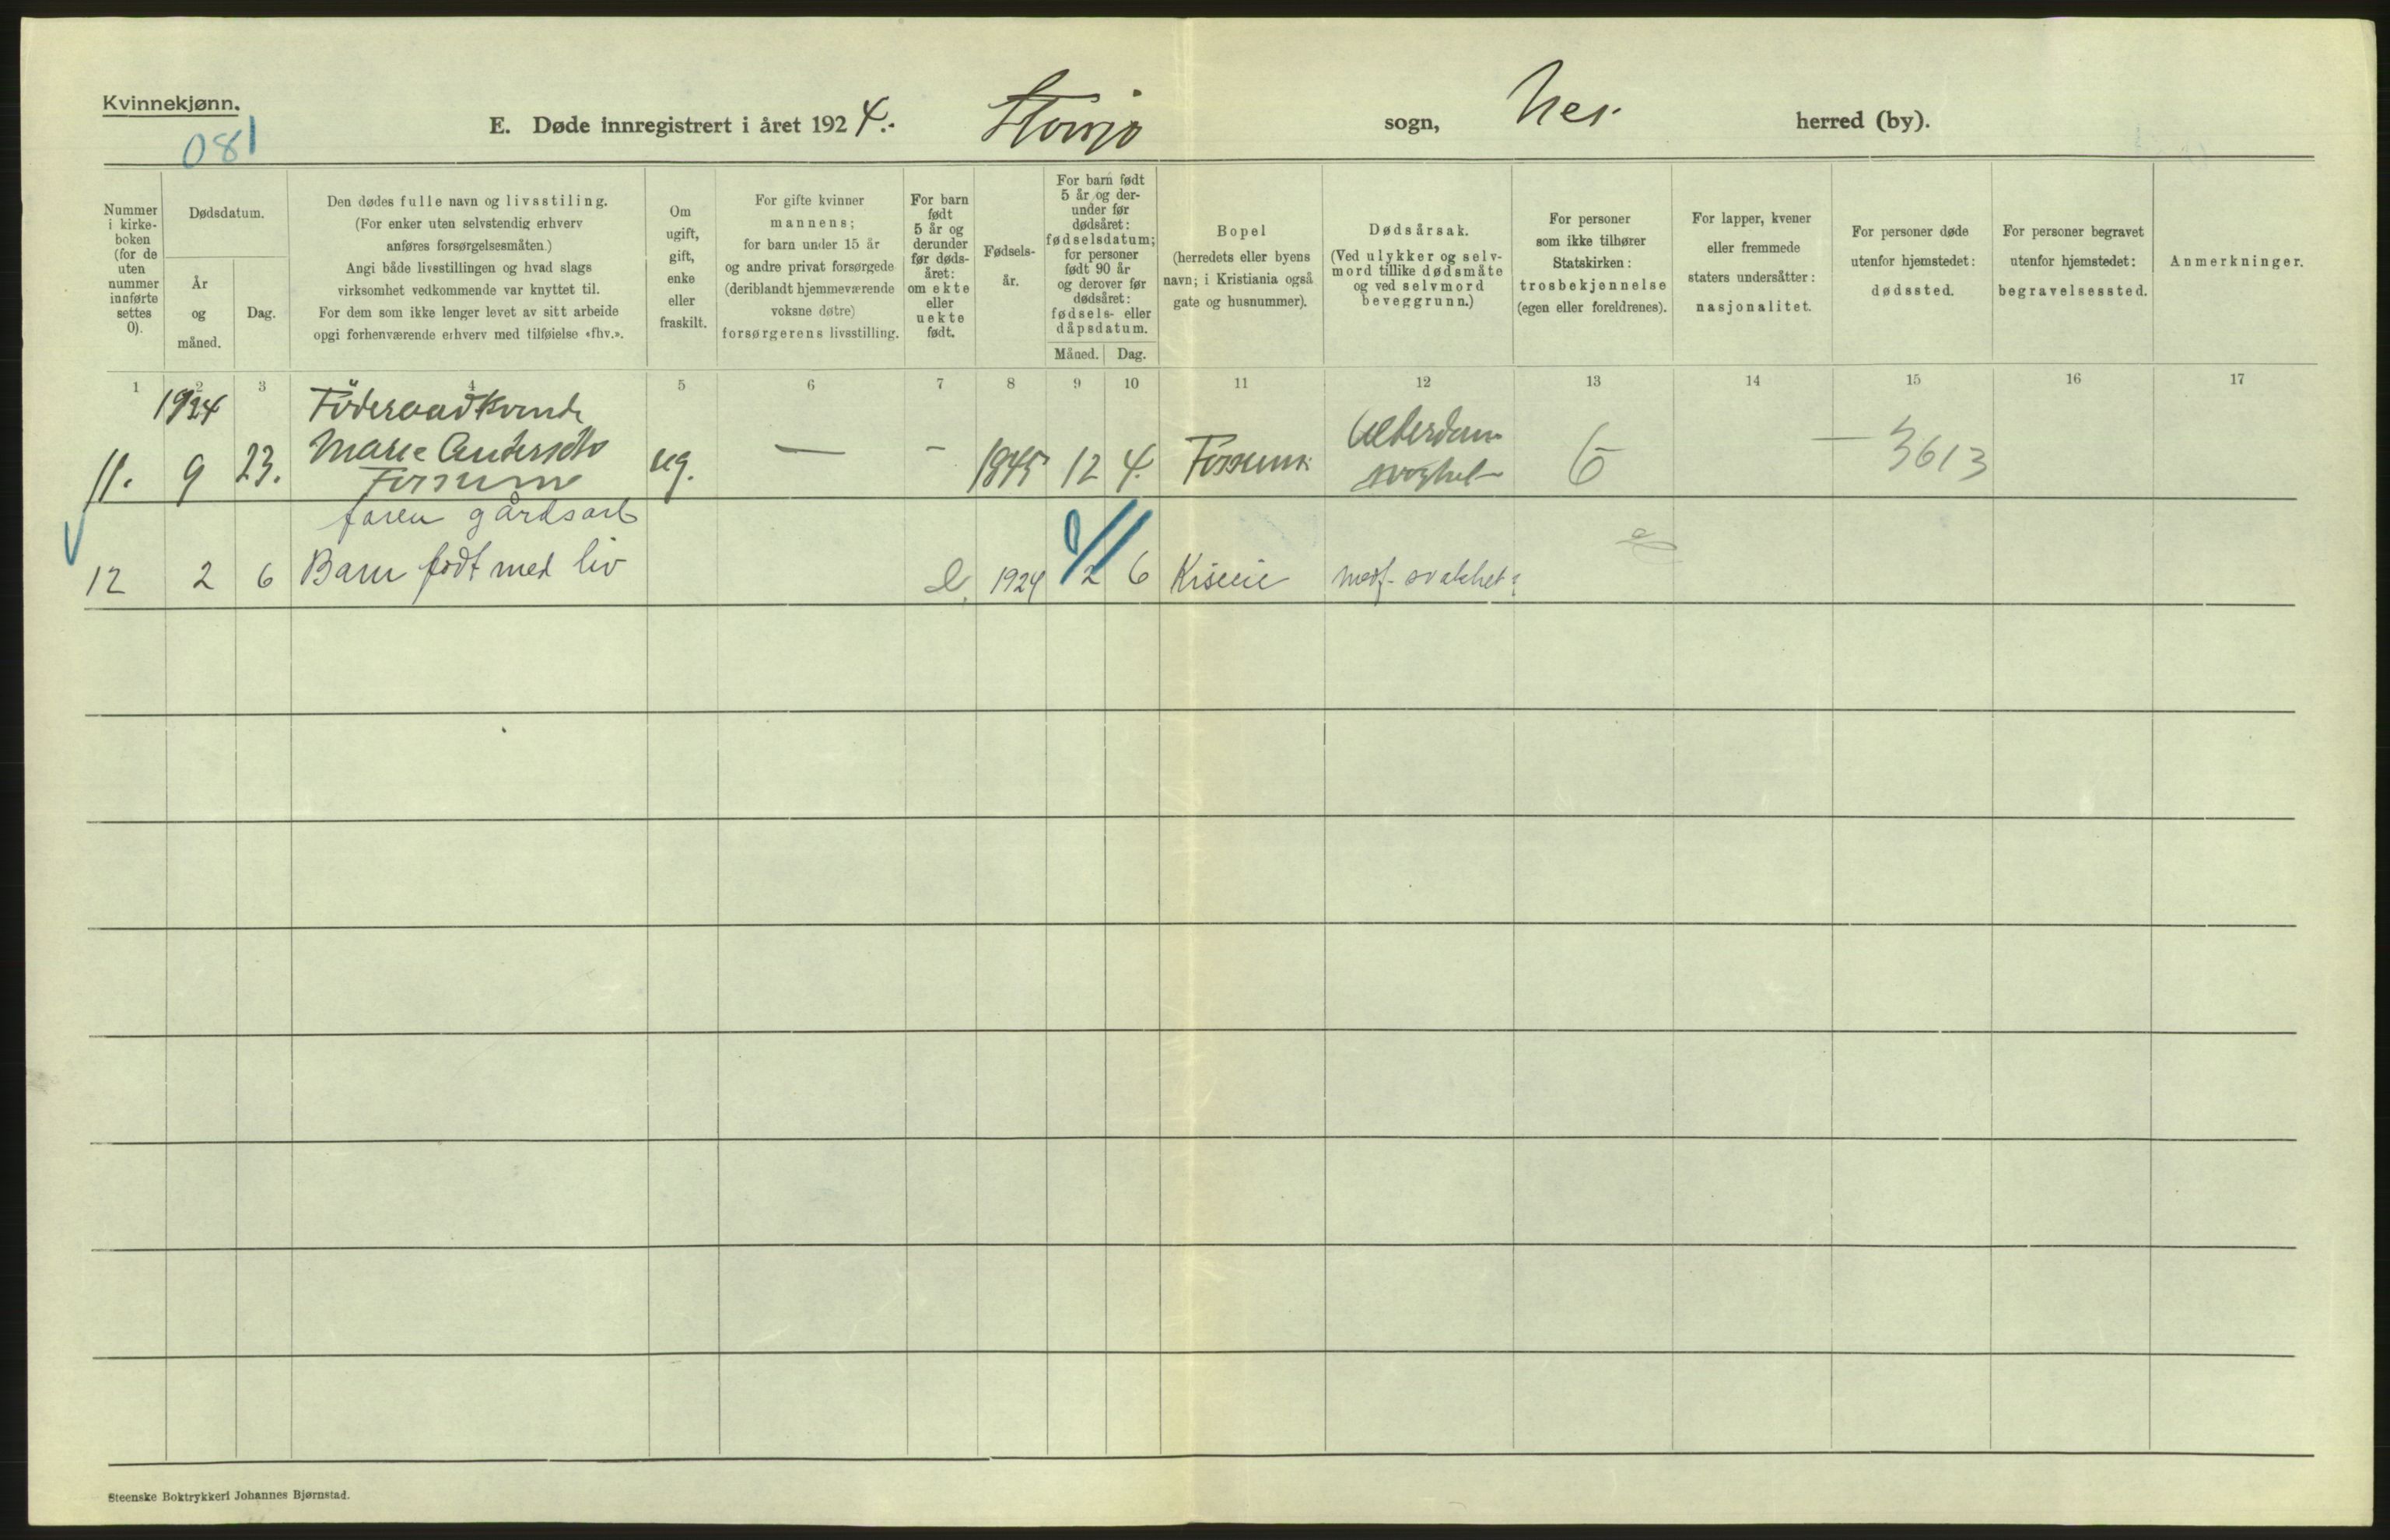 Kvinnekjønn.
081
E. Døde innregistrert i året 1924. sogn, Nes herred (by).
Nummer i kirke- boken (for de uten nummer innførte settes 0).
Dødsdatum.
År og måned.
Dag.
Den dødes fulle navn og livsstiling.
(For enker uten selvstendig erhverv
anføres forsørgelsesmåten.)
Angi både livsstillingen og hvad slags
virksomhet vedkommende var knyttet til.
For dem som ikke lenger levet av sitt arbeide
opgi forhenværende erhverv med tilføielse «fhv.».
Om ugift, gift, enke eller fraskilt.
For gifte kvinner
mannens;
for barn under 15 år
og andre privat forsørgede
(deriblandt hjemmeværende
voksne døtre)
forsørgerens livsstilling.
For barn født 5 år og derunder før døds- året: om ekte eller uekte født.
Fødsels- år.
For barn født 5 år og der- under før dødsåret: fødselsdatum; for personer født 90 år og derover før dødsåret: fødsels- eller dåpsdatum.
Måned. Dag.
Bopel
(herredets eller byens
navn; i Kristiania også
gate og husnummer).
Dødsårsak.
(Ved ulykker og selv-
mord tillike dødsmåte
og ved selvmord
beveggrunn.)
For personer
som ikke tilhører
Statskirken:
trosbekjennelse
(egen eller foreldrenes).
For lapper, kvener
eller fremmede
staters undersåtter:
nasjonalitet.
For personer døde
utenfor hjemstedet:
dødssted.
For personer begravet
utenfor hjemstedet:
begravelsessted.
Anmerkninger.
1 2 3 4 5 6 7 8 9 10 11 12 13 14 15 16 17
1924 Föderaadkvinde
11. 9 23. Marie Andersdtr ug. — – 1845 12 4. Fossum Alderdoms 6 — 3613
Fossum
faren gårdsarb
12 2 6 Barn født med liv 1924 2 6 Kiseie medf. svakhet
Steenske Boktrykkeri Johannes Bjørnstad.